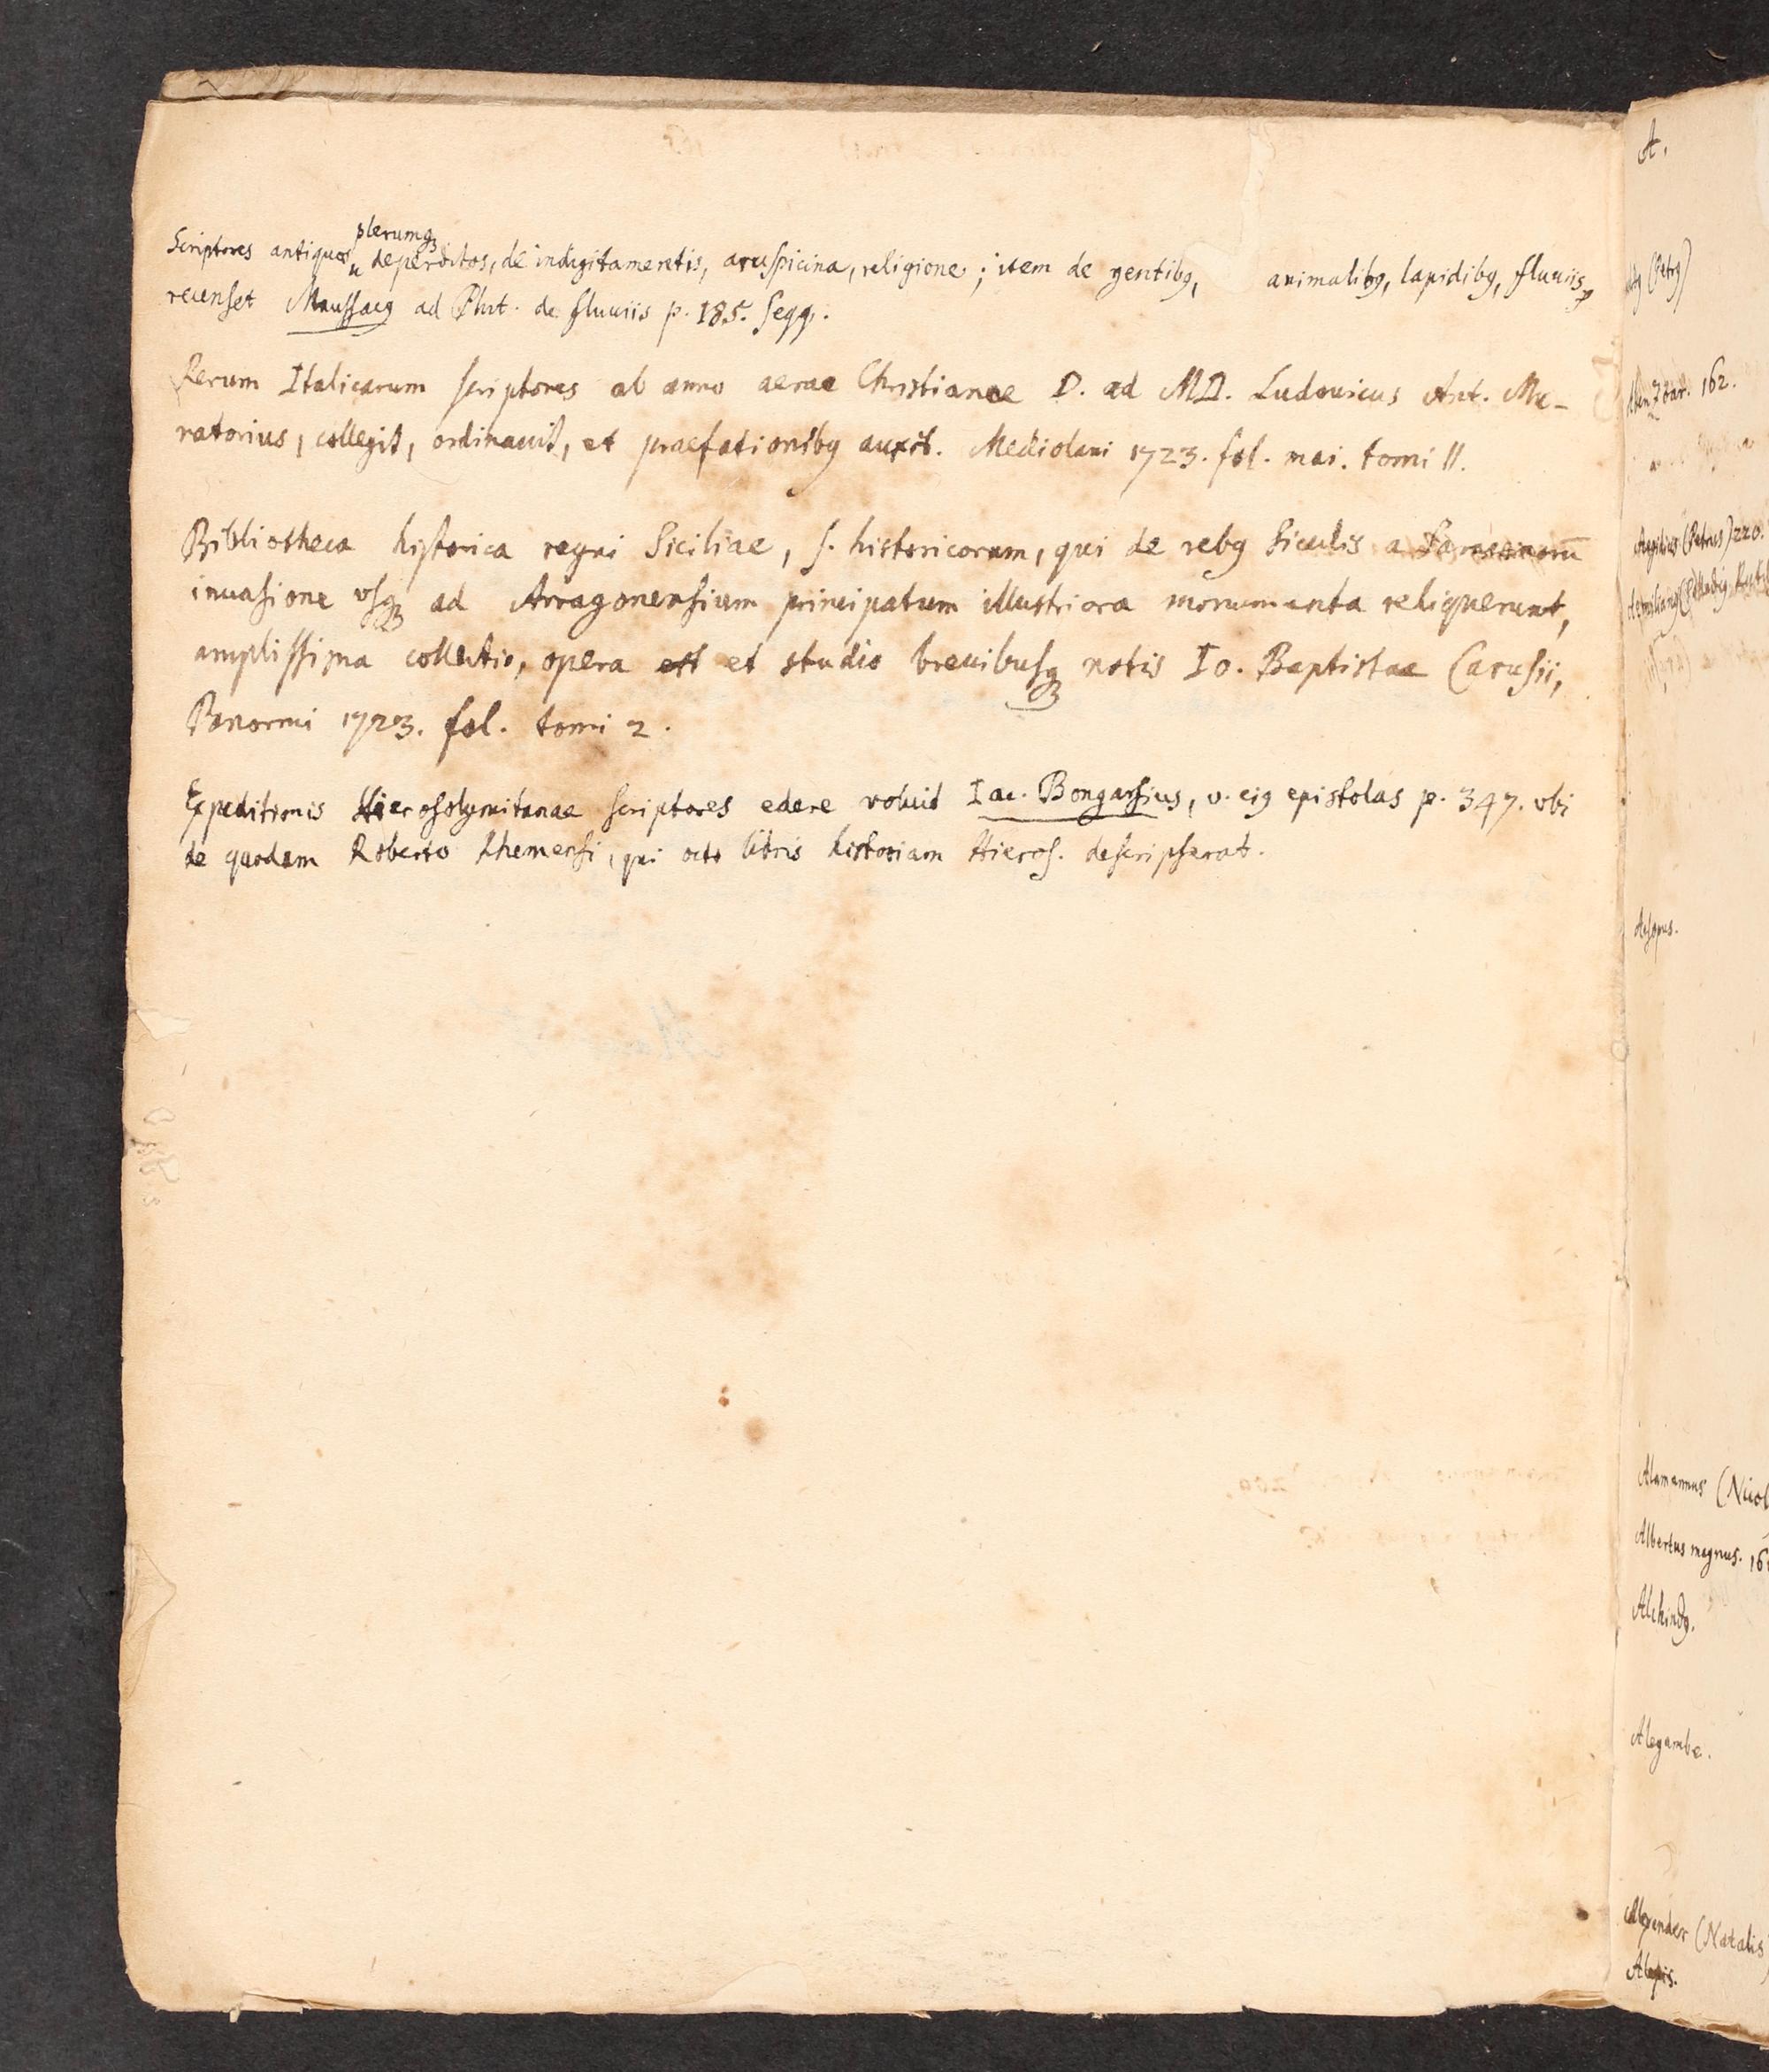 plerumqꝫ
Scriptores antiquos deperditos, de indigitamentis, aruspicina, religione; item de gentibꝰ, animalibꝰ, lapidibꝰ, fluuiis,
recenset Maussacꝰ ad Plut. de fluuiis p. 185. seqq.
Rerum Italicarum scriptores ab anno aerae Christianae D. ad MD. Ludouicus Ant. Mu-
ratorius, collegit, ordinauit, et praefationibꝰ auxit. Mediolani 1723. fol. mai. tomi II.
Bibliotheca historica regni Siciliae, s. historicorum, qui de rebꝰ Siculis a Saracenorū
inuasione vsqꝫ ad Arragonensium principatum illustriora monumenta reliquerunt,
amplissima collectio, opera est et studio breuibusqꝫ notis Io. Baptistae Carusii,
Panormi 1723. fol. tomi 2.
Expeditionis Hierosolymitanae scriptores edere voluit Iac. Bongarsius, v. eiꝰ epistolas p. 347. vbi
de quodam Roberto Rhemensi, qui octo libris historiam Hieros. descripserat.
A.
(Petrꝰ)
162.
(Petrus) 220.
Aesopus.
Alamannus (Nicol
Albertus magnus. 16
Alchindꝰ.
Alegambe.
Alexander (Natalis)
Alexis.